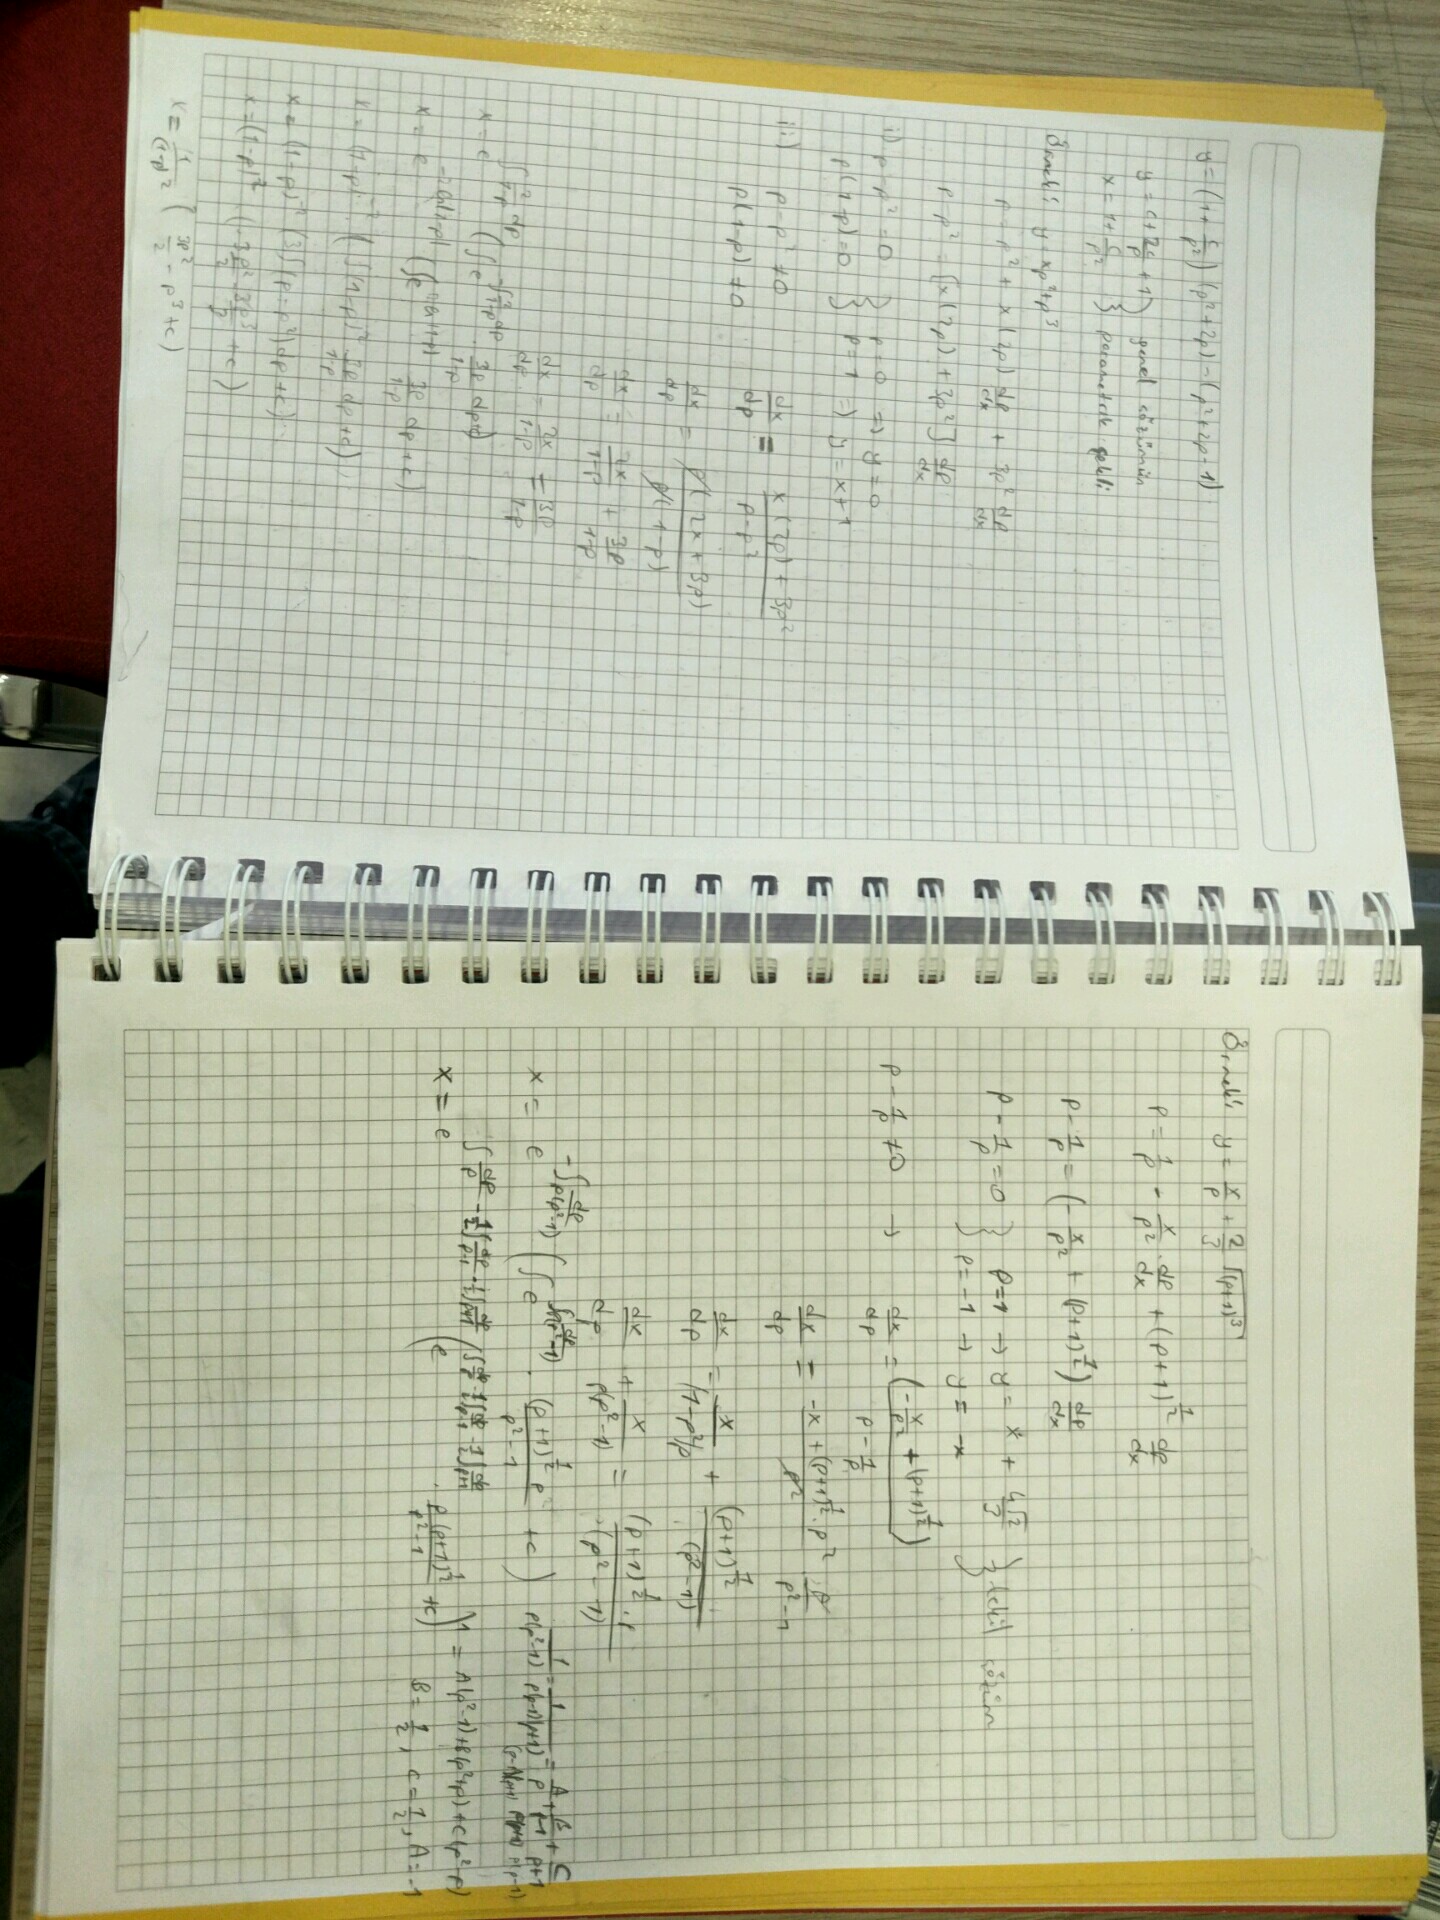 y = (1 + c/p²) (p² + 2p) - (p² + 2p - 1)
y = c + 2c/p + 1 } genel çözümün
x = 1 + c/p² } parametrik şekli
Örnek: y = xp² + p³
p = p² + x(2p) dp/dx + 3p² dp/dx
p - p² = [x(2p) + 3p²] dp/dx
i) p - p² = 0 } p = 0 => y = 0
p(1-p) = 0 } p = 1 => y = x + 1
ii) p - p² ≠ 0 dx/dp = (x(2p) + 3p²)/(p - p²)
p(1-p) ≠ 0
dx/dp = p(2x + 3p)/p(1-p)
dx/dp = 2x/(1-p) + 3p/(1-p)
dx/dp - 2x/(1-p) = 3p/(1-p)
x = e^(∫ 2/(1-p) dp) (∫ e^(-∫ 2/(1-p) dp) · 3p/(1-p) dp + c)
x = e^(-2ln|1-p|) (∫ e^(2ln|1-p|) 3p/(1-p) dp + c)
x = (1-p)^-2 · (∫ (1-p)² · 3p/(1-p) dp + c)
x = (1-p)^-2 (3∫(p - p²) dp + c)
x = (1-p)^-2 · (3p²/2 - 3p³/3 + c)
x = 1/(1-p)² (3p²/2 - p³ + c)
Örnek: y = x/p + 2/3 √(p+1)³
p = 1/p - x/p² · dp/dx + (p+1)^1/2 dp/dx
p - 1/p = (-x/p² + (p+1)^1/2) dp/dx
p - 1/p = 0 } p = 1 → y = x + 4√2/3 } tekil çözüm
p = -1 → y = -x
p - 1/p ≠ 0 → dx/dp = (-x/p² + (p+1)^1/2)/(p - 1/p)
dx/dp = (-x + (p+1)^1/2 · p²)/p² · p/(p² - 1)
dx/dp = x/(1-p²)p + (p+1)^1/2/(p² - 1)
dx/dp + x/p(p² - 1) = (p+1)^1/2 · p/(p² - 1)
x = e^(-∫ dp/p(p²-1)) (∫ e^(∫ dp/p(p²-1)) · (p+1)^1/2 p/(p² - 1) + c) 1/p(p²-1) = 1/p(p-1)(p+1) = A/p + B/(p-1) + C/(p+1)
(p-1)(p+1) p(p+1) p(p-1)
x = e^(∫ dp/p - 1/2 ∫ dp/(p-1) - 1/2 ∫ dp/(p+1)) (e^(∫ dp/p - 1/2 ∫ dp/(p-1) - 1/2 ∫ dp/(p+1)) · p(p+1)^1/2/(p² - 1) + c) 1 = A(p²-1) + B(p²+p) + C(p²-p)
B = 1/2, C = 1/2, A = -1